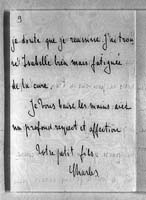 9
je doute que je réussisse. J'ai trou
vé Isabelle bien mais fatiguée
de la cure.
Je vous baise les mains avec
un profond respect et affection
Votre petit fils
Charles